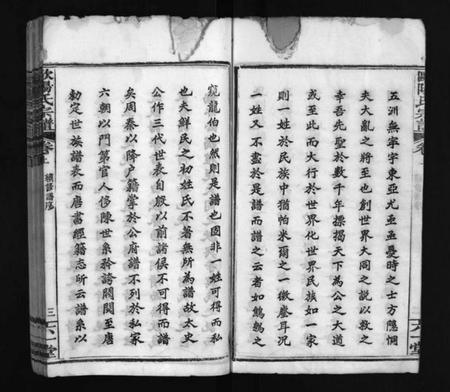 五洲無寧宇東亞尤亟亟憂時之士方隱惘
夫大亂之將至也創世界大同之說以救之
幸吾先聖於數千年標揭天下為公之大道
或至此而大行於世界化世界民族如一家
則一姓於民族中猶帕米爾之一微塵耳況
一姓又不盡於是譜而譜之云者如鷦鷯之
窺龍伯也然則是譜也固非一姓可得而私
也夫鮮民之初姓氏不著無所為譜故太史
公作三代世表自殷以前諸侯不可得而譜
矣周秦以降户籍掌於公府譜不列於私家
六朝以門第官人侈陳世系矜誇閥閱至唐
勅定世族譜表而唐書經籍志所云譜系以
歐陽氏宗譜
卷上
續修譜序
三
六一堂
歐陽氏宗譜
六一堂